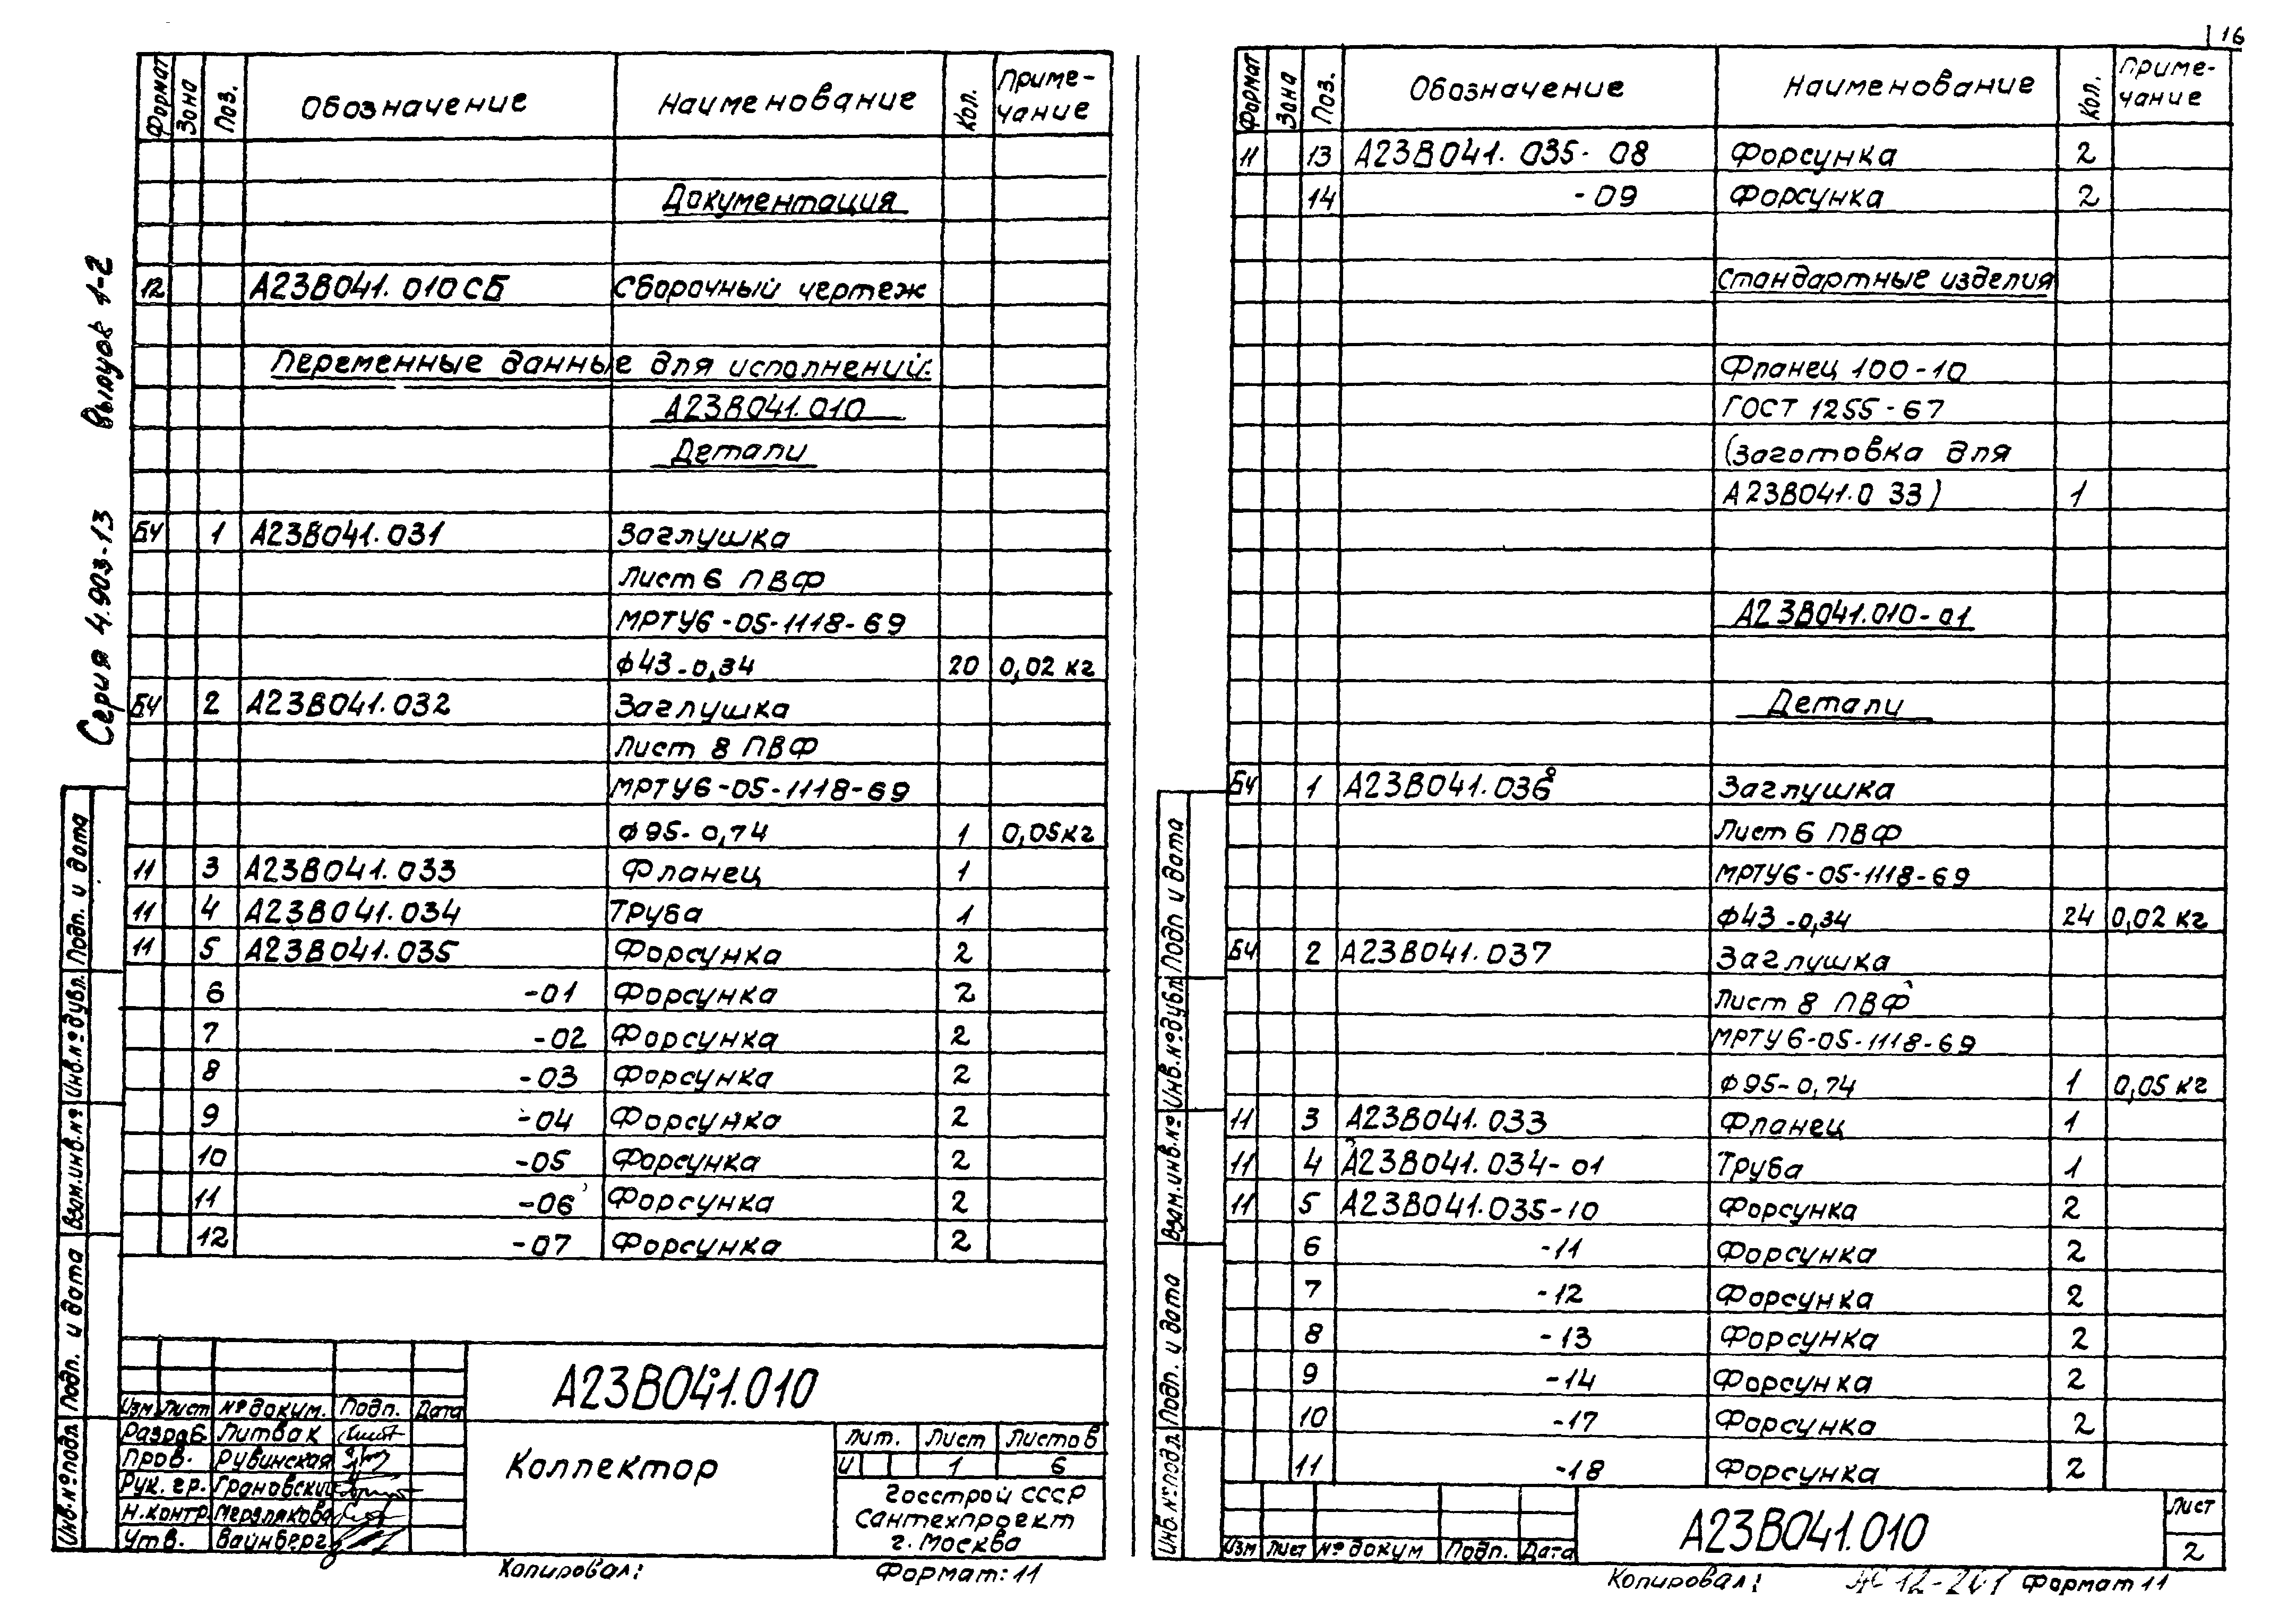 16
Серия 4.903-13 Выпуск 1-2
Формат Зона Поз. Обозначение Наименование Кол. Приме-
чание
Документация
12 А23В041.010СБ Сборочный чертеж
Переменные данные для исполнений:
А23В041.010
Детали
БЧ 1 А23В041.031 Заглушка
Лист 6 ПВФ
МРТУ6-05-1118-69
ф43-0,34 20 0,02 кг
БЧ 2 А23В041.032 Заглушка
Лист 8 ПВФ
МРТУ6-05-1118-69
ф95-0,74 1 0,05кг
11 3 А23В041.033 Фланец 1
11 4 А23В041.034 Труба 1
11 5 А23В041.035 Форсунка 2
6 -01 Форсунка 2
7 -02 Форсунка 2
8 -03 Форсунка 2
9 -04 Форсунка 2
10 -05 Форсунка 2
11 -06 Форсунка 2
12 -07 Форсунка 2
Инв.№подл. Подп. и дата Взам.инв.№ Инв.№дубл. Подп. и дата
А23В041.010
Изм Лист №докум. Подп. Дата
Разраб. Литвак
Пров. Рувинская
Рук. гр. Грановский
Н.контр. Мерзлякова
Утв. Вайнберг
Коллектор
Лит. Лист Листов
И 1 6
Госстрой СССР
Сантехпроект
г. Москва
Копировал: Формат: 11
Формат Зона Поз. Обозначение Наименование Кол. Приме-
чание
11 13 А23В041.035-08 Форсунка 2
14 -09 Форсунка 2
Стандартные изделия
Фланец 100-10
ГОСТ 1255-67
(заготовка для
А23В041.033) 1
А23В041.010-01
Детали
БЧ 1 А23В041.036 Заглушка
Лист 6 ПВФ
МРТУ6-05-1118-69
ф43-0,34 24 0,02 кг
БЧ 2 А23В041.037 Заглушка
Лист 8 ПВФ
МРТУ6-05-1118-69
ф95-0,74 1 0,05 кг
11 3 А23В041.033 Фланец 1
11 4 А23В041.034-01 Труба 1
11 5 А23В041.035-10 Форсунка 2
6 -11 Форсунка 2
7 -12 Форсунка 2
8 -13 Форсунка 2
9 -14 Форсунка 2
10 -17 Форсунка 2
11 -18 Форсунка 2
Инв.№подл. Подп. и дата Взам.инв.№ Инв.№дубл. Подп и дата
Изм Лист № докум Подп. Дата
А23В041.010
Лист
2
Копировал: Формат 11